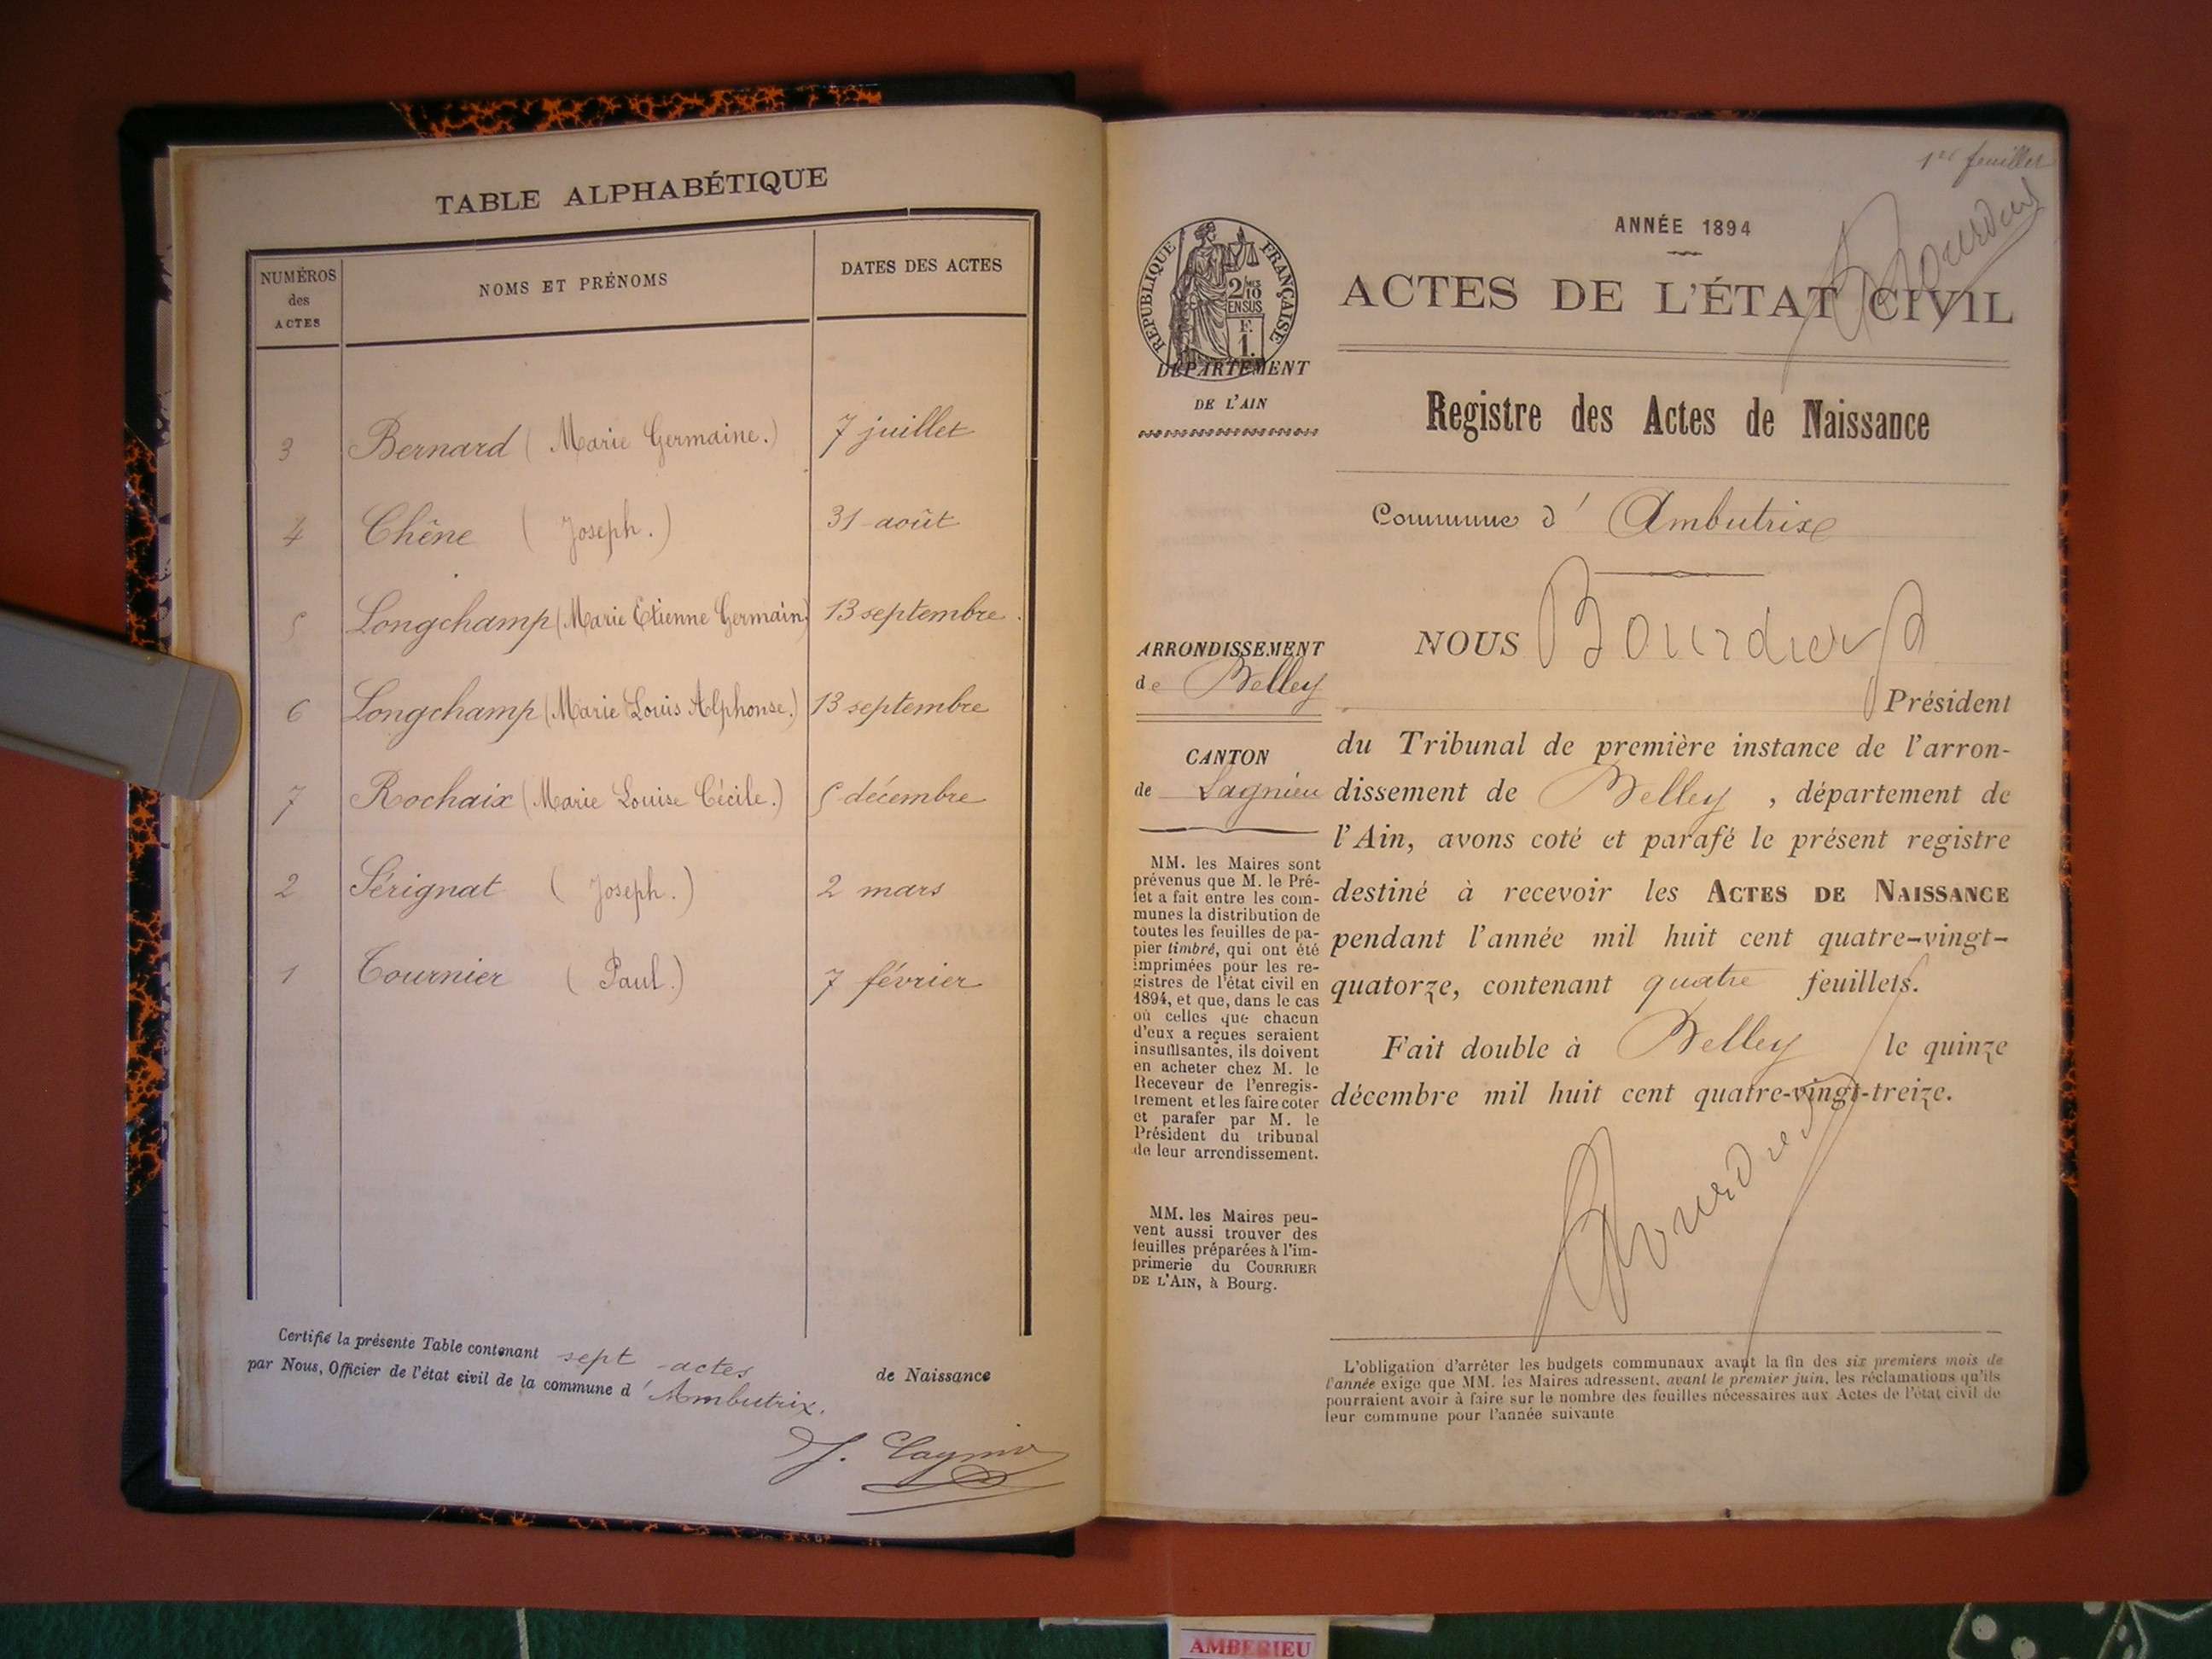 TABLE ALPHABÉTIQUE
NUMÉROS
des
ACTES
NOMS ET PRÉNOMS
DATES DES ACTES
3 Bernard (Marie Germaine.) 7 juillet
4 Chêne (Joseph.) 31 août
5 Longchamp (Marie Etienne Germain) 13 septembre.
6 Longchamp (Marie Louis Alphonse.) 13 septembre
7 Rochaix (Marie Louise Cécile.) 5 décembre
2 Sérignat (Joseph.) 2 mars
1 Tournier (Paul.) 7 février
Certifié la présente Table contenant sept actes de Naissance
par Nous, Officier de l'état civil de la commune d'Ambutrix.
1er feuillet
Bourdier
ANNÉE 1894
ACTES DE L'ÉTAT CIVIL
RÉPUBLIQUE FRANÇAISE
2/10
EN SUS
F.
1.
DÉPARTEMENT
DE L'AIN
Registre des Actes de Naissance
Commune d' Ambutrix
ARRONDISSEMENT
de Belley
CANTON
de Lagnieu
MM. les Maires sont
prévenus que M. le Pré-
fet a fait entre les com-
munes la distribution de
toutes les feuilles de pa-
pier timbré, qui ont été
imprimées pour les re-
gistres de l'état civil en
1894, et que, dans le cas
où celles que chacun
d'eux a reçues seraient
insuffisantes, ils doivent
en acheter chez M. le
Receveur de l'enregis-
trement et les faire coter
et parafer par M. le
Président du tribunal
de leur arrondissement.
MM. les Maires peu-
vent aussi trouver des
feuilles préparées à l'im-
primerie du COURRIER
DE L'AIN, à Bourg.
NOUS Bourdier
Président
du Tribunal de première instance de l'arron-
dissement de Belley, département de
l'Ain, avons coté et parafé le présent registre
destiné à recevoir les ACTES DE NAISSANCE
pendant l'année mil huit cent quatre-vingt-
quatorze, contenant quatre feuillets.
Fait double à Belley le quinze
décembre mil huit cent quatre-vingt-treize.
Bourdier
L'obligation d'arrêter les budgets communaux avant la fin des six premiers mois de
l'année exige que MM. les Maires adressent, avant le premier juin, les réclamations qu'ils
pourraient avoir à faire sur le nombre des feuilles nécessaires aux Actes de l'état civil de
leur commune pour l'année suivante
AMBERIEU